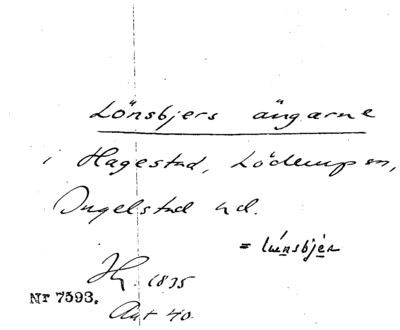 Lönsbjers ängarne
i Hagestad, Löderups sn,
Ingelstad hd.
= lúnsbjèr
Hy. 1835
Nr 7593.
Akt 40.